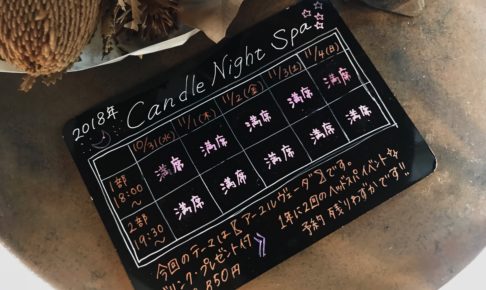 2018年 Candle Night Spa
10/31(水) 11/1(木) 11/2(金) 11/3(土) 11/4(日)
1部 18:00〜 満席 満席 満席 満席 満席
2部 19:30〜 満席 満席 満席 満席 満席
今回のテーマは《アーユルヴェーダ》です。
ドリンク・プレゼント付
850円
1年に2回のヘッドスパイベント
予約 残りわずかです!!